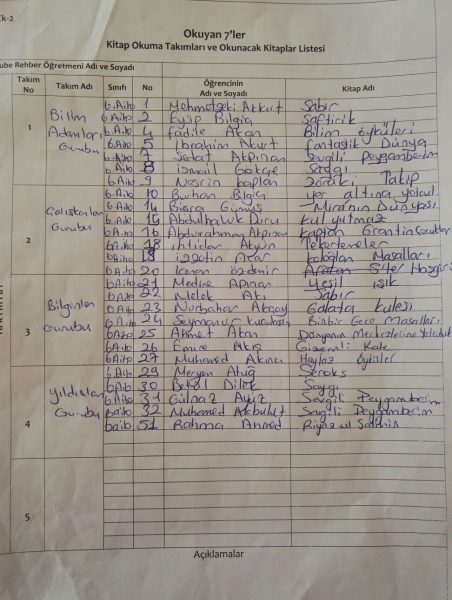 Ek-2
Okuyan 7'ler
Kitap Okuma Takımları ve Okunacak Kitaplar Listesi
Şube Rehber Öğretmeni Adı ve Soyadı
Takım No Takım Adı Sınıfı No Öğrencinin Adı ve Soyadı Kitap Adı
1 Bilim Adamları Gurubu
6.Aiho 1 Mehmetzeki Akkurt Sabır
6.Aiho 2 Eyüp Bilgiç Saftirik
6.Aiho 4 Fadile Akan Bilim öyküleri
6.Aiho 5 İbrahim Akurt fantastik Dünya
6.Aiho 7 Sedat Akpınan Sevgili peygamberim
6.Aiho 8 ismail Gökçe Saygı
6.Aiho 9 Nesrin kaplan Zoraki Takip
2 Çalışkanlar Gurubu
6.Aiho 10 Burhan Bilgiç yer altına yolcul
6.Aiho 14 Büşra Gümüş Miranın Dünyası
6.Aiho 15 Abdulhaluk Diru kul yutmaz
6.Aiho 16 Abdurahman Akpınan kaptan Grantın Çocukları
6.A.iho 18 ihtidar Akyün Tekerlemeler
6Aiho 19 izzetin Acar keloğlan Masalları
6Aiho 20 kenan özdemir
3 Bilginler Gurubu
6Aiho 21 Medine Apınan yeşil ışık
6.Aiho 22 Melek Akı Sabır
6.Aiho 23 Nurbahar Akçay Galata kulesi
6.Aiho 24 Seymanur Binbir Gece Masalları
6Aiho 25 Ahmet Akan Dünyanın Merkezine Yolculuk
6A.ib 26 Emine Akış Gizemli Kale
6Aiho 27 Muhamed Akıncı Haylaz öyküler
4 yıldızlar Gurubu
6.Aiho 29 Meryem Atuğ
6.Aiho 30 Betül Dilek Saygı
6.Aiho 31 Gülnaz Ayiz Sevgili Peygamberim
6aiho 32 Muhamed Akbulut Sevgili Peygamberim
6aib 51 Rahma Ahmed Riyaz ul Salihin
5
Açıklamalar